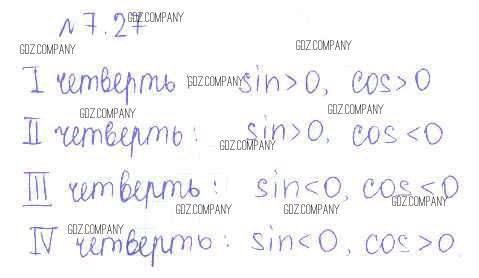 № 7.27 GDZ.COMPANY
GDZ.COMPANY GDZ.COMPANY
I четверть: GDZ.COMPANY sin>0, cos>0
GDZ.COMPANY GDZ.COMPANY
II четверть: sin>0, cos<0
GDZ.COMPANY
III четверть: sin<0, cos<0
GDZ.COMPANY GDZ.COMPANY GDZ.COMPANY
GDZ.COMPANY
IV четверть: sin<0, cos>0